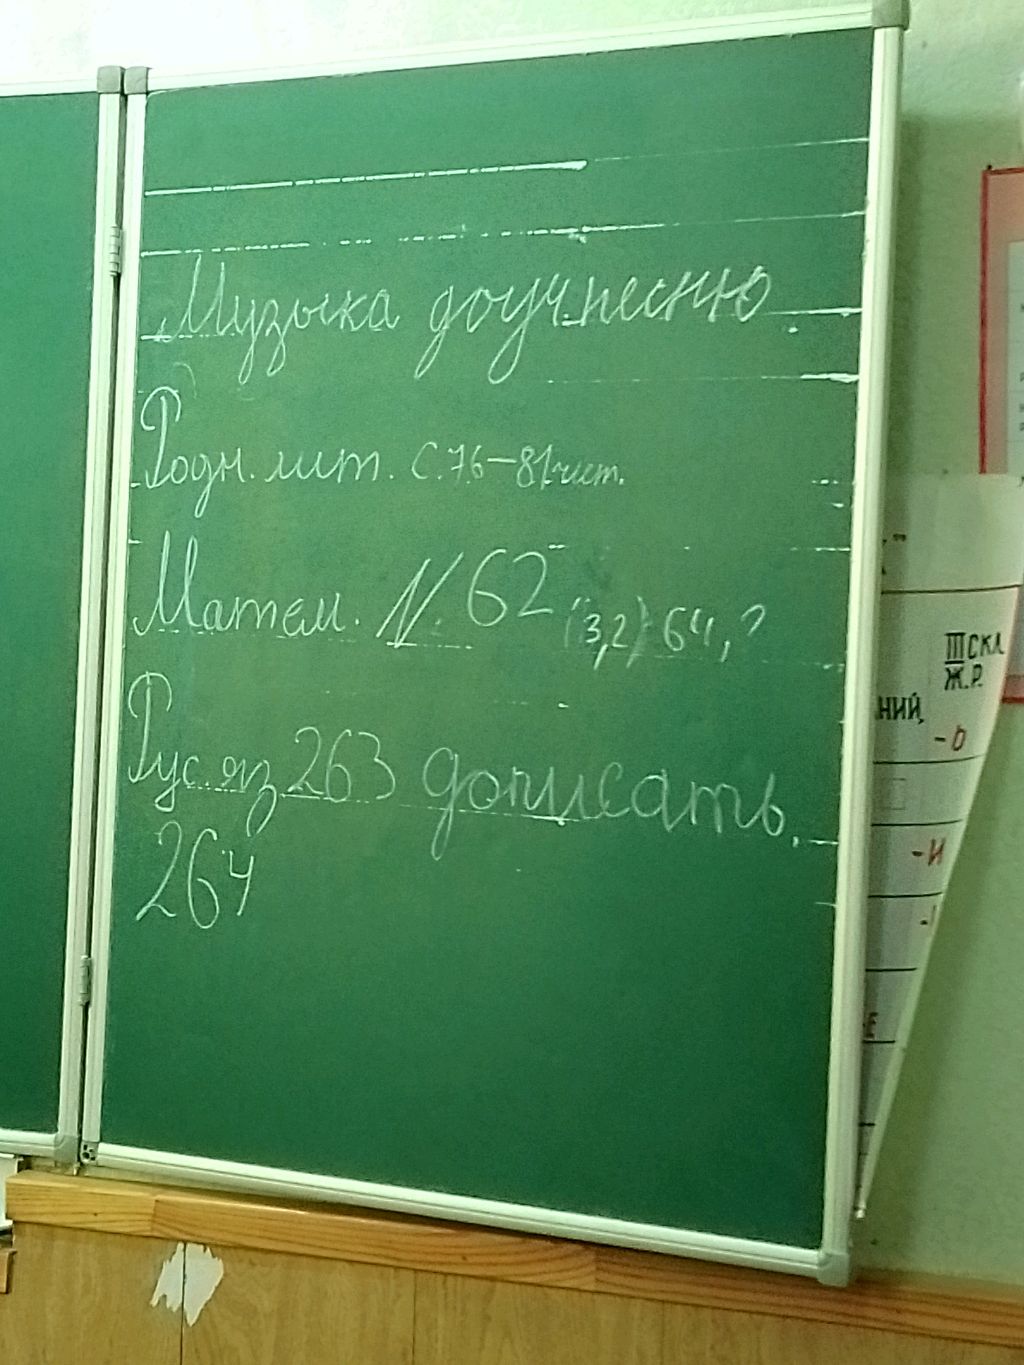 Музыка доуч.песню
Родн. лит. С.76-81чит.
Матем. N. 62 (3,2) 64, ?
Рус.яз 263 дописать,
264
III СКЛ
Ж.Р.
НИЙ,
-Ю
-И
-И
-Е